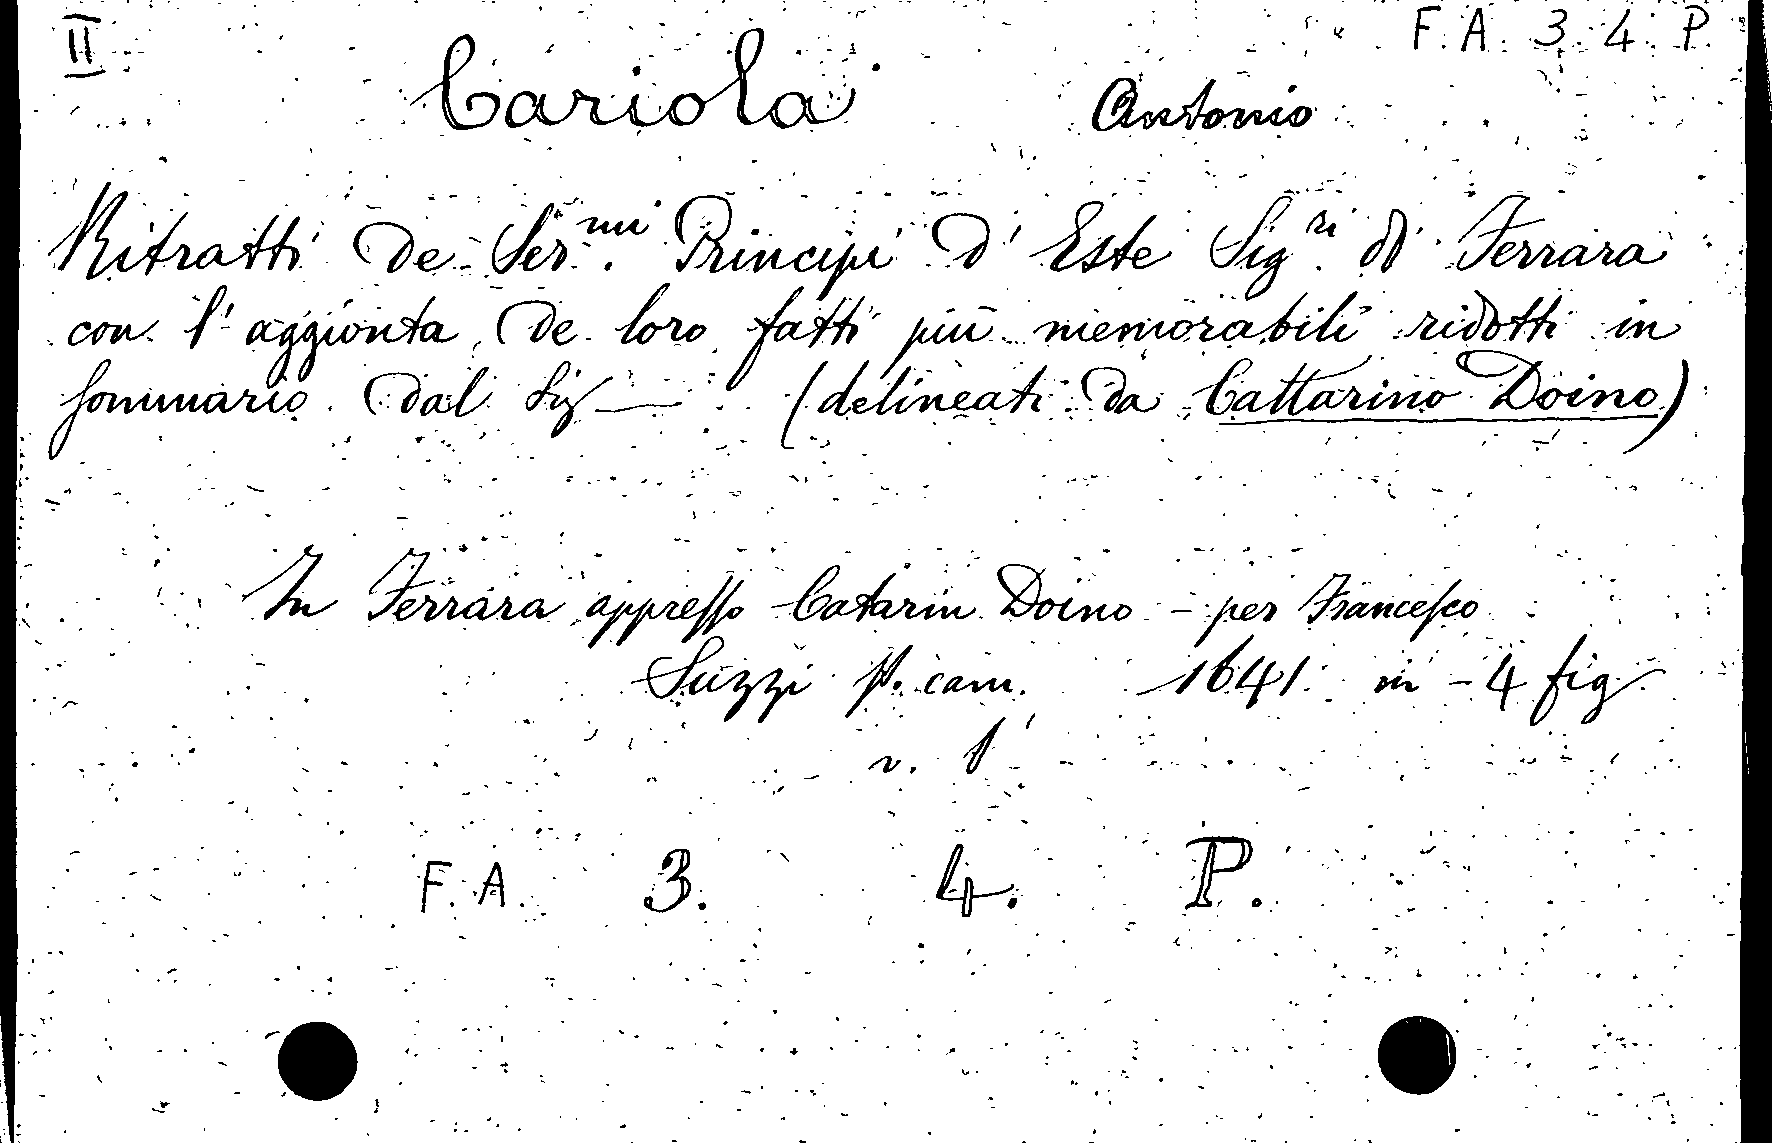 II F. A. 3. 4. P.
Cariola Antonio
Ritratti de Ser.mi Principi d'Este Sig.ri di Ferrara
con l'aggionta de loro fatti più memorabili ridotti in
sommario dal Sig — (delineati da Cattarino Doino)
In Ferrara appresso Catarin Doino - per Francesco
Suzzi St. cam. 1641 in-4 fig
v. 1
F. A. 3. 4. P.